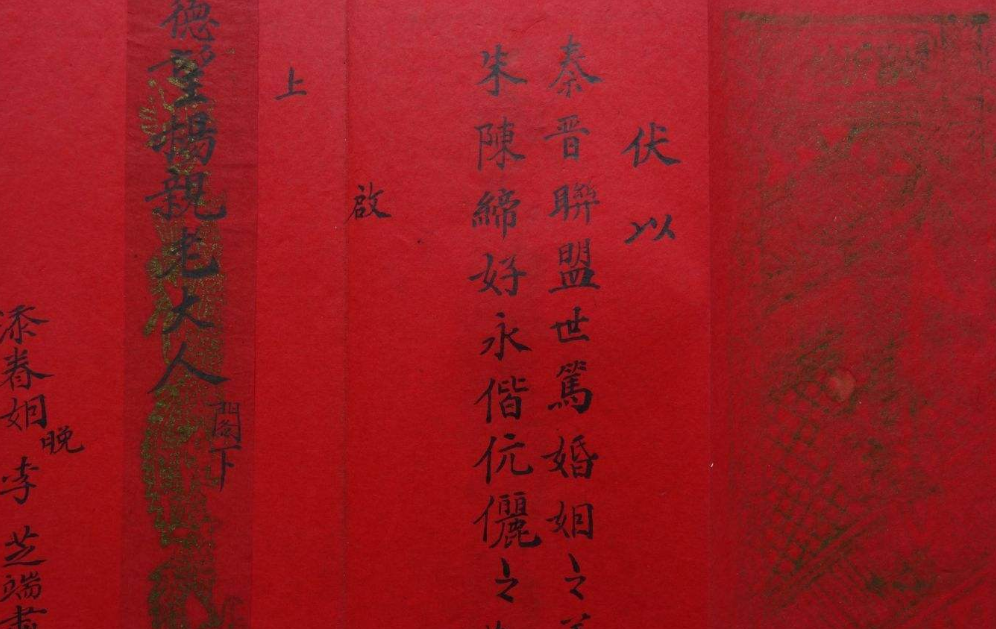 伏以
秦晋聯盟世篤婚姻之
朱陳締好永偕伉儷之
啟
上
德望楊親老大人
閣下
添眷姻晚李芝端書